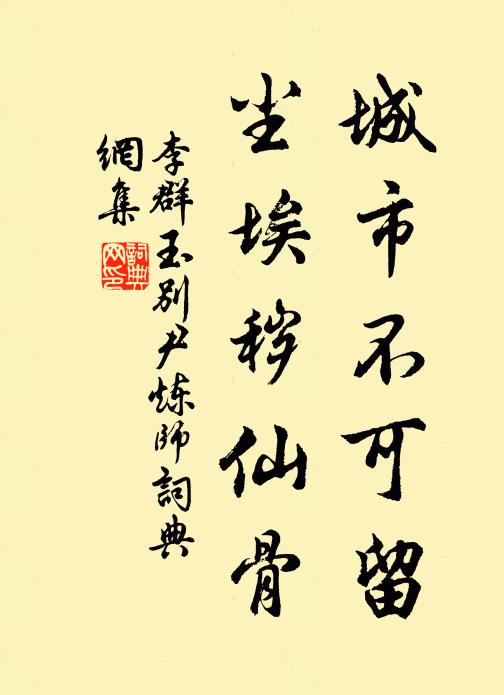 城市不可留
尘埃秽仙骨
李群玉别尹炼师詞典
網集
詞典
网印